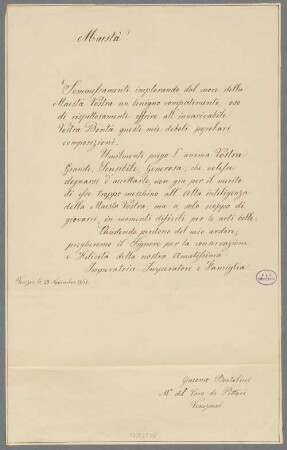 Maestà!
Sommessamente implorando dal cuore della
Maestà Vostra un benigno compatimento, oso
di rispettosamente offrire all'invariabile
Vostra Bontà queste mie deboli popolari
composizioni.
Umilmente prego l'anima Vostra
Grande, Sensibile, Generosa, che volesse
degnarsi d'accettarle, non già per il merito
di esse troppo meschino all'Alta intelligenza
della Maestà Vostra, ma a solo scopo di
giovarsi, in momenti difficili per le arti belle.
Chiedendo perdono del mio ardire,
pregheremo il Signore per la conservazione
e Felicità della nostra Amatissima
Imperatrice Imperatore e Famiglia
Venezia li 29 Novembre
Giacomo Bortolini
M.o del Coro di Pittori
Veneziani